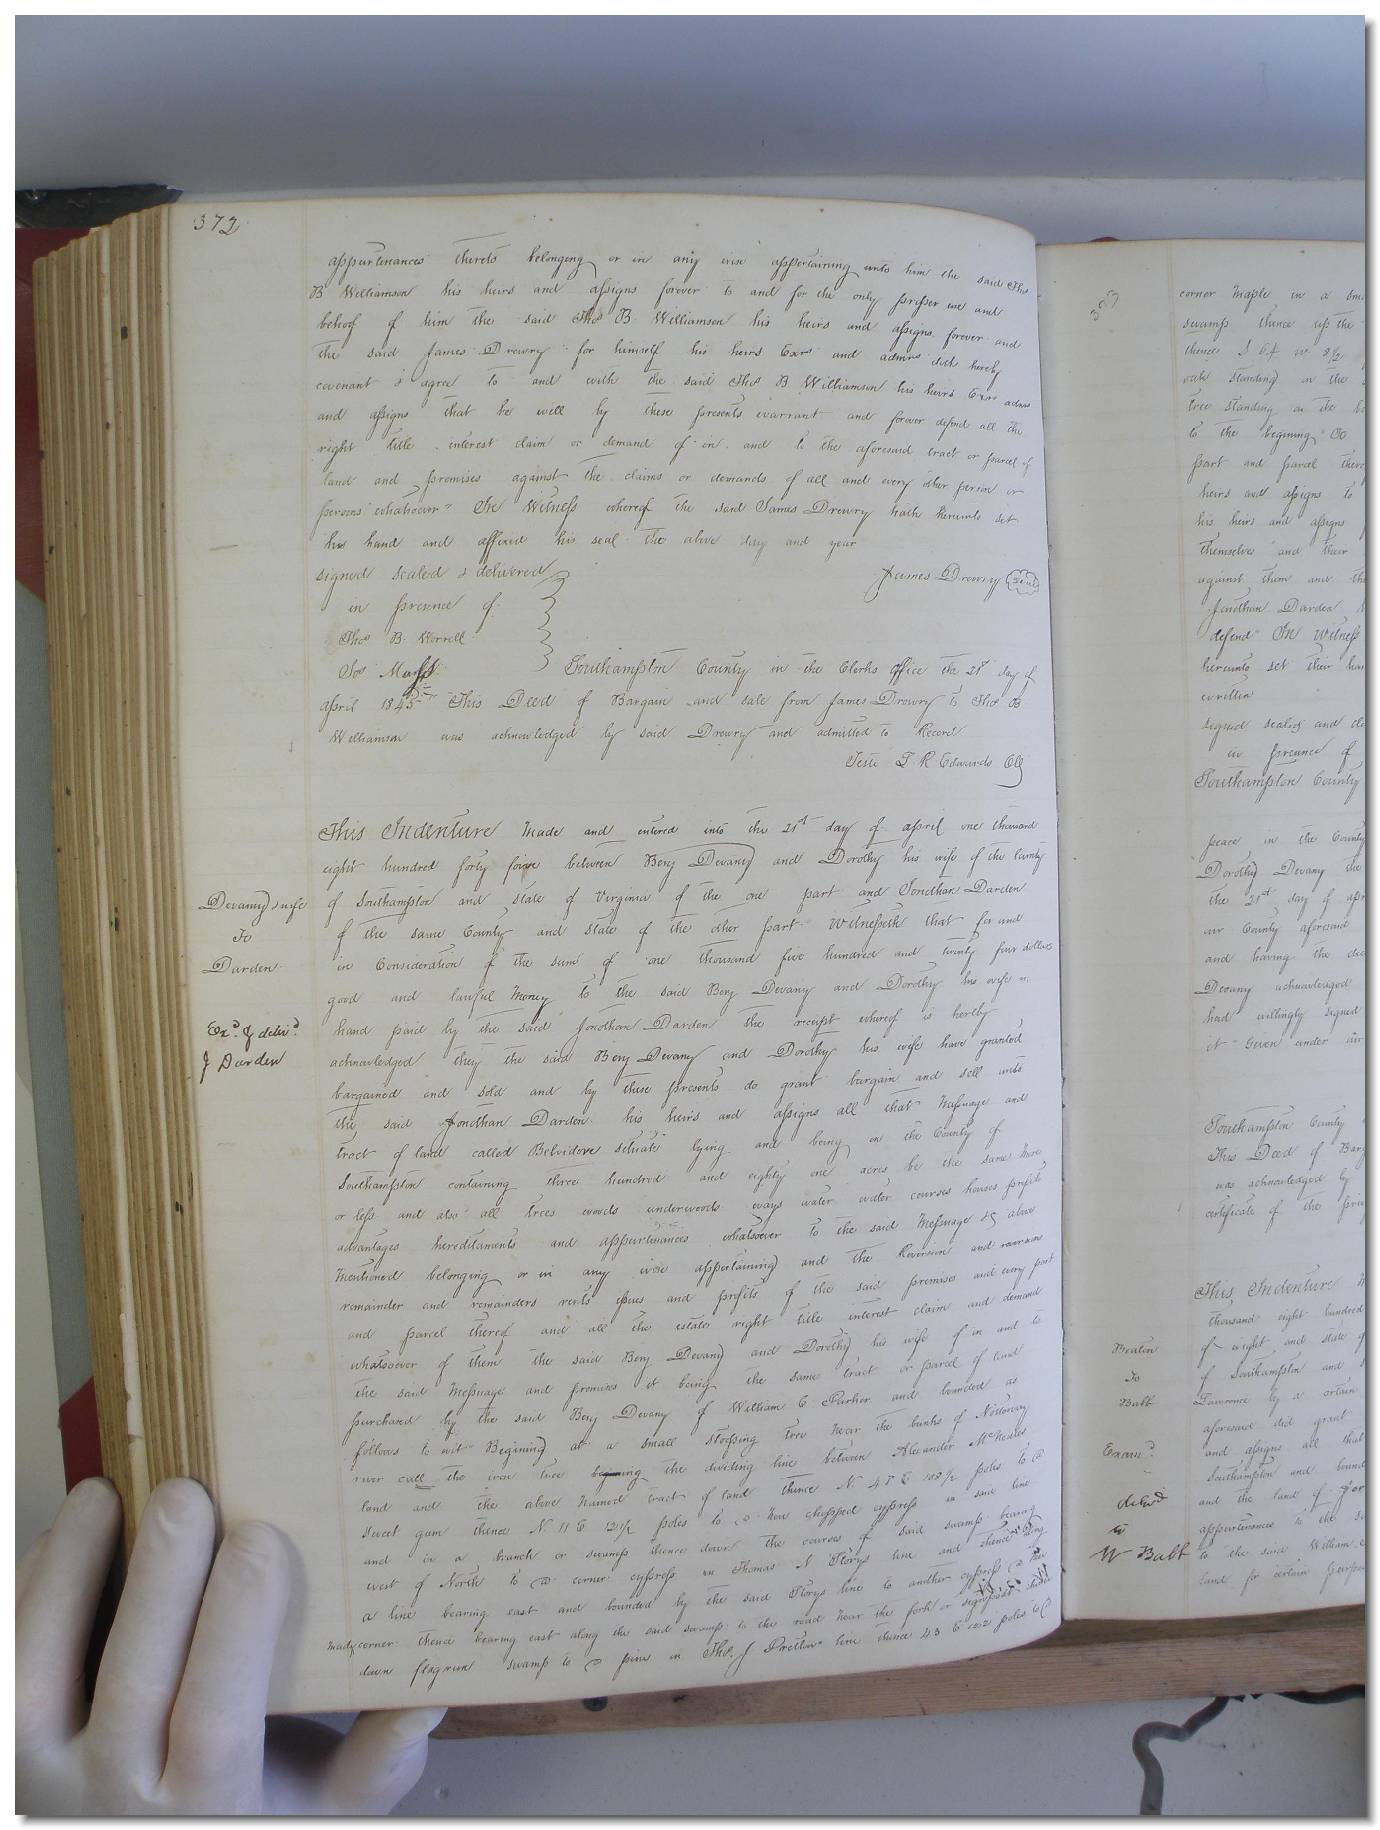 372
appurtenances thereto belonging or in any wise appertaining unto him the said Thos
B Williamson his heirs and assigns forever to and for the only proper use and
behoof of him the said Thos B Williamson his heirs and assigns forever and
the said James Drewry for himself his heirs Exrs and admrs doth hereby
covenant & agree to and with the said Thos B Williamson his heirs Exrs admrs
and assigns that he will by these presents warrant and forever defend all the
right title interest claim or demand of in and to the aforesaid tract or parcel of
land and premises against the claims or demands of all and every other person or
persons whatsoever In Witness whereof the said James Drewry hath hereunto set
his hand and affixed his seal the above day and year
signed sealed & delivered
James Drewry Seal
in presence of
Thos B. Worrell
Jos
Southampton County in the Clerks office the 21st day of
april 1845 This Deed of Bargain and sale from James Drewry to Thos B
Williamson was acknowledged by said Drewry and admitted to Record
Teste L R Edwards Clk
This Indenture Made and entered into the 21st day of april one thousand
eight hundred forty between Benj Devany and Dorothy his wife of the County
Devany & wife
To
Darden
of Southampton and state of Virginia of the one part and Jonathan Darden
of the same County and state of the other part Witnesseth that for and
in Consideration of the sum of one thousand five hundred and twenty four dollars
good and lawful Money to the said Benj Devany and Dorothy his wife in
Exd & delivd
J Darden
hand paid by the said Jonathan Darden the receipt whereof is hereby
acknowledged they the said Benj Devany and Dorothy his wife have granted
bargained and sold and by these presents do grant bargain and sell unto
the said Jonathan Darden his heirs and assigns all that Messuage and
tract of land called Belvidore situate lying and being in the County of
Southampton containing three hundred and eighty one acres be the same More
or less and also all trees woods underwoods ways water water courses houses profits
advantages hereditaments and appurtenances whatsoever to the said Messuage &c above
Mentioned belonging or in any wise appertaining and the Reversion and
remainder and remainders rents issues and profits of the said premises and every part
and parcel thereof and all the estate right title interest claim and demand
whatsoever of them the said Benj Devany and Dorothy his wife of in and to
the said Messuage and premises it being the same tract or parcel of land
purchased by the said Benj Devany of William C Parker and bounded as
follows to wit Begining at a small stooping tree near the banks of Nottoway
river call the iron tree begining the dividing line between Alexander
land and the above Named tract of land thence N. 48 E 188½ poles to a
sweet gum thence N 11 E 121½ poles to a New chopped cypress in said line
and in a branch or swamp thence down the courses of said swamp bearing
west of North to a corner cypress in Thomas N Storys line and thence along
a line bearing east and bounded by the said Storys line to another cypress a
made corner thence bearing east along the said swamp to the road near the fork or signpost thence
down flagrun swamp to a pine in Thos. J Prettow line thence 43 E poles to a
corner Maple in a
swamp thence up the
thence S 64 W 8½
oak standing in the
tree standing in the
to the begining
part and parcel
heirs and assigns to
his heirs and assigns
themselves and their
against them and
Jonathan Darden
defend In Witness
hereunto set their
written
signed sealed and
in presence of
Southampton County
peace in the County
Dorothy Devany the
the 21st day of
our County aforesaid
and having the
Devany acknowledged
had willingly signed
it Given under
Southampton County
This Deed of
was acknowledged by
certificate of the
This Indenture
thousand eight hundred
Beaten
To
Babb
of wight and state
of Southampton and
Lawrence by a certain
aforesaid did grant
Examd
and assigns all that
Southampton and
delivd
to
W Babb
and the land of
appurtenances to the
to the said William
land for certain